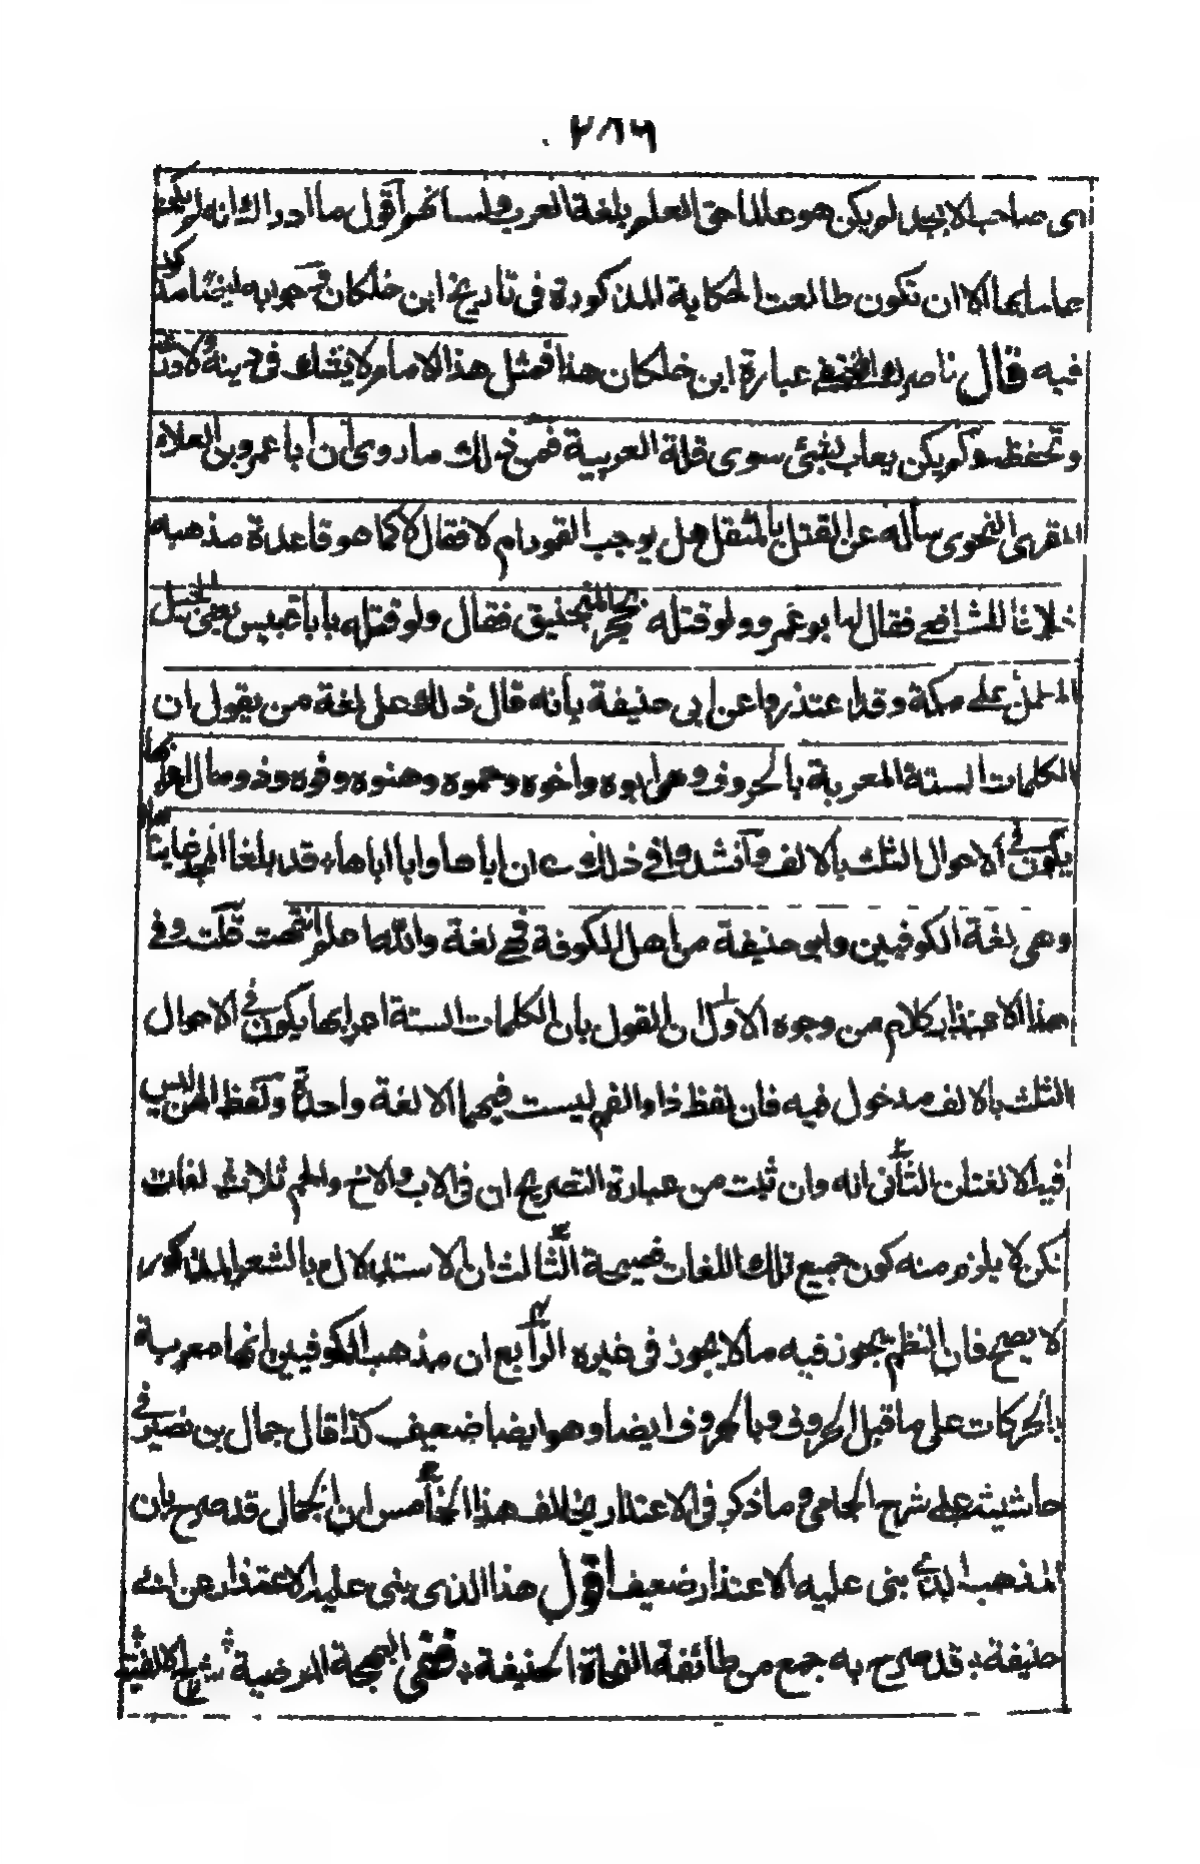 ٢٨٦
ى صاحب الابجد لو يكن هو عالما حق العلم بلغة العرب ولسانهم أقول ما ادراك انه لم يكن
عاما بها الا ان تكون طالعت الحكاية المذكورة فى تاريخ ابن خلكان
فيه قال ناصرك المختفى عبارة ابن خلكان هذا فمثل هذا الامام لا يشك فى دينه ولا ورعه
وتحفظه ولم يكن يعاب بشئ سوى قلة العربية فمن ذلك ما روى أن أبا عمرو بن العلاء
المقرى النحوى سأله عن القتل بالمثقل هل يوجب القود ام لا فقال لا كما هو قاعدة مذهبه
خلافا للشافعى فقال له ابو عمرو ولو قتله بحجر المنجنيق فقال ولو قتله بابا قبيس يعنى الجبل
المطل على مكة وقد اعتذروا عن ابى حنيفة بأنه قال ذلك على لغة من يقول ان
الكلمات الستة المعربة بالحروف وهى ابوه واخوه وحموه وهنوه وفوه وذو مال اعرابها
يكون فى الاحوال الثلث بالالف وأنشدوا فى ذلك ع ان اباها وابا اباها، قد بلغا فى المجد غايتاها
وهى لغة الكوفيين وابو حنيفة من اهل الكوفة فهى لغة والله اعلم انتهت قلت وفى
هذا الاعتذار كلام من وجوه الاول ان القول بان الكلمات الستة اعرابها يكون فى الاحوال
الثلث بالالف مدخول فيه فان لفظ ذا والفم ليست فيهما الا لغة واحدة ولفظ الهن ليس
فيه الا لغتان الثانى انه وان ثبت من عبارة التصريح ان فى الاب والاخ والحم ثلاث لغات
لكن لا يلزم منه كون جميع تلك اللغات فصيحة الثالث ان الاستدلال بالشعر المذكور
لا يصح فان النظم يجوز فيه ما لا يجوز فى غيره الرابع ان مذهب الكوفيين انها معربة
بالحركات على ما قبل الحروف وبالحروف ايضا وهو ايضا ضعيف كذا قال جمال بن نصير فى
حاشيته على شرح الجامى وما ذكر فى الاعتذار يخالف هذا الخامس ان الجمال قد صرح بان
المذهب الذى بنى عليه الاعتذار ضعيف اقول هذا الذى بنى عليه الاعتذار عن ابى
حنيفة، قد صرح به جمع من طائفة النحاة الحنيفة، ففى البهجة المرضية شرح الالفية